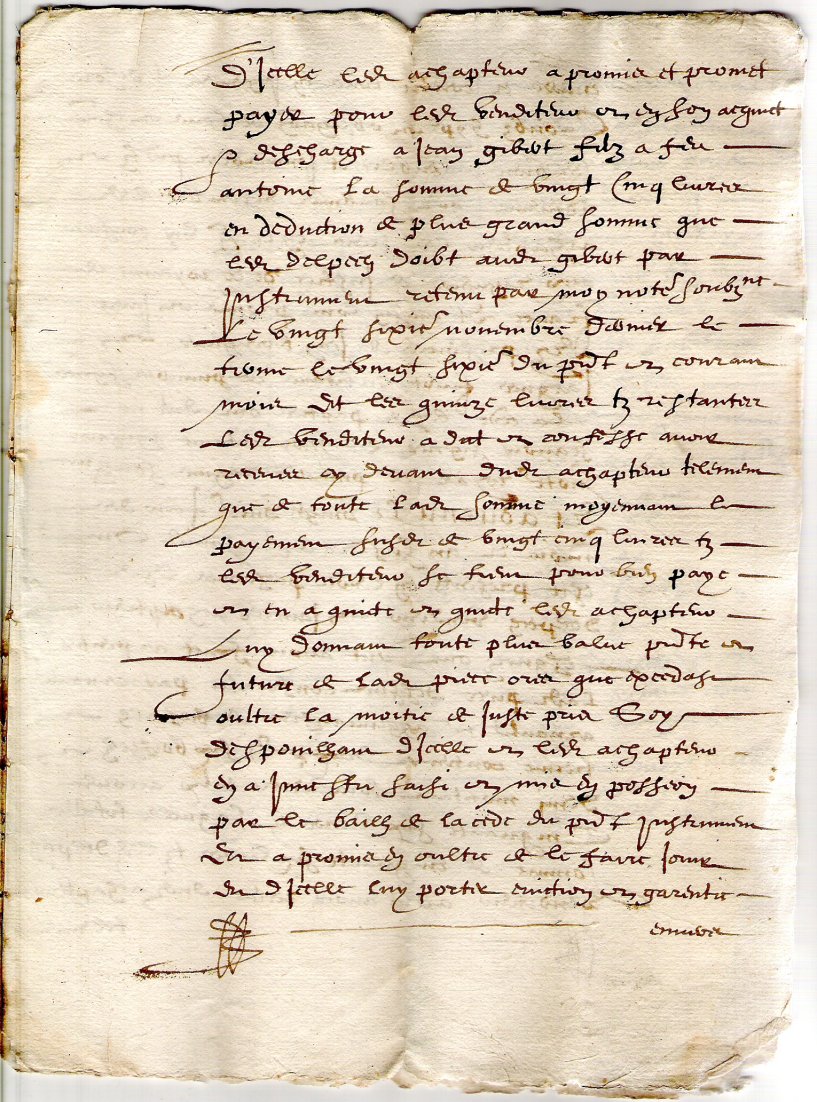 D'Jcelle ledt achapteur a promis et promet
payer pour ledt venditeur et en son acquict
& descharge a Jean gibert filz a feu
antoine La somme de vingt Cinq livres
en deduction de plus grand somme que
ledt delpech doibt audt gibert par
Jnstrument retenu par moy notre soubzne
Le vingt sixie novembre dernier le
terme le vingt sixie du pnt et courant
mois Et les quinze livres tz restantes
Ledt venditeur a dit et confesse avoir
receues cy devant dudt achapteur telement
que de toute ladt somme moyennant le
payement susdt de vingt cinq livres tz
ledt venditeur se tient pour bien paye
et en a quitte et quitte ledt achapteur
Luy donnant toute plus value pnte et
future de ladt piece ores que excedast
oultre la moitie de Juste pris Soy
despouilhant dJcelle et ledt achapteur
en a Jnvestu saisi et mis en posseon
par le bailh de la cede du pnt Jnstrument
Et a promis en oultre de le faire Jouir
Et dJcelle luy porter eviction et garentie
envers